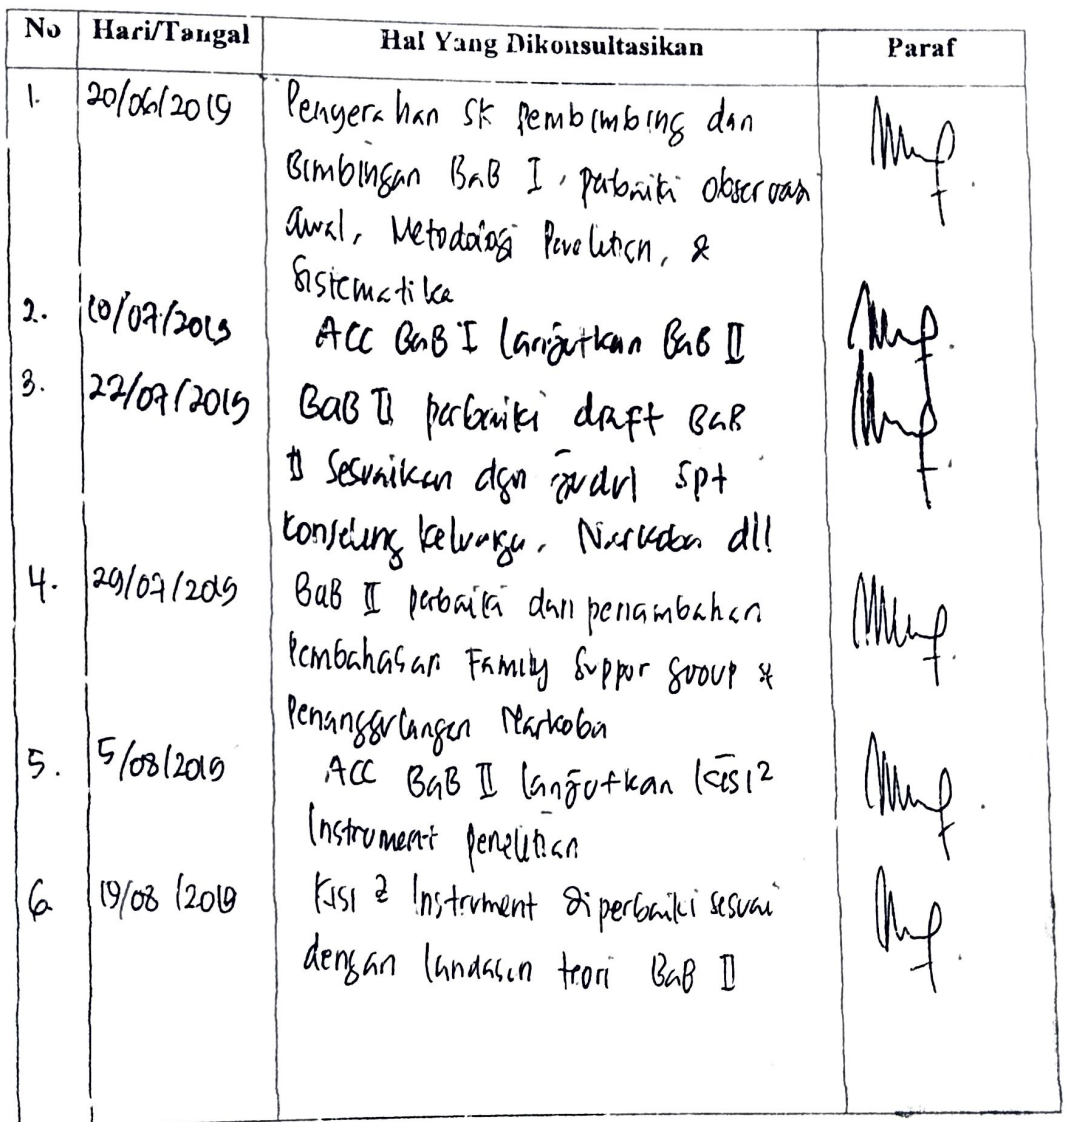 No Hari/Tanggal Hal Yang Dikonsultasikan Paraf
1. 20/06/2019 Penyerahan SK Pembimbing dan
Bimbingan BaB I, perbaiki observasi
awal, Metodologi Penelitian, &
Sistematika
2. 10/07/2019 ACC BaB I lanjutkan BaB II
3. 22/07/2019 BaB II perbaiki draft BaB
II Sesuaikan dgn judul spt
konseling keluarga, Narkoba dll
4. 29/07/2019 BaB II perbaiki dan penambahan
Pembahasan Family Suppor group &
Penanggulangan Narkoba
5. 5/08/2019 ACC BaB II lanjutkan kisi2
Instrument penelitian
6. 19/08/2019 Kisi2 Instrument diperbaiki sesuai
dengan landasan teori BaB II